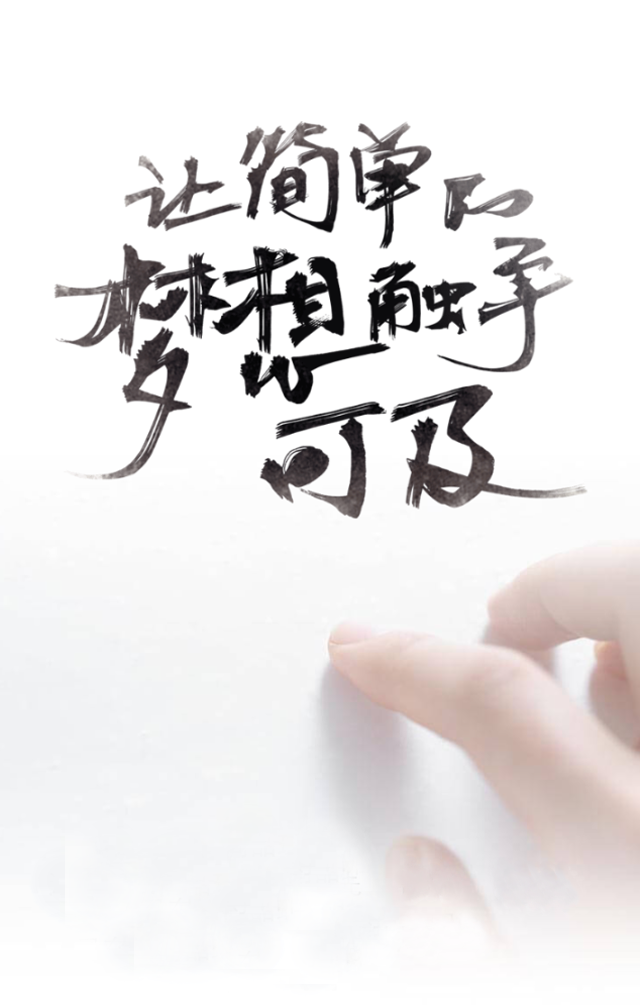 让简单的
梦想触手
可及